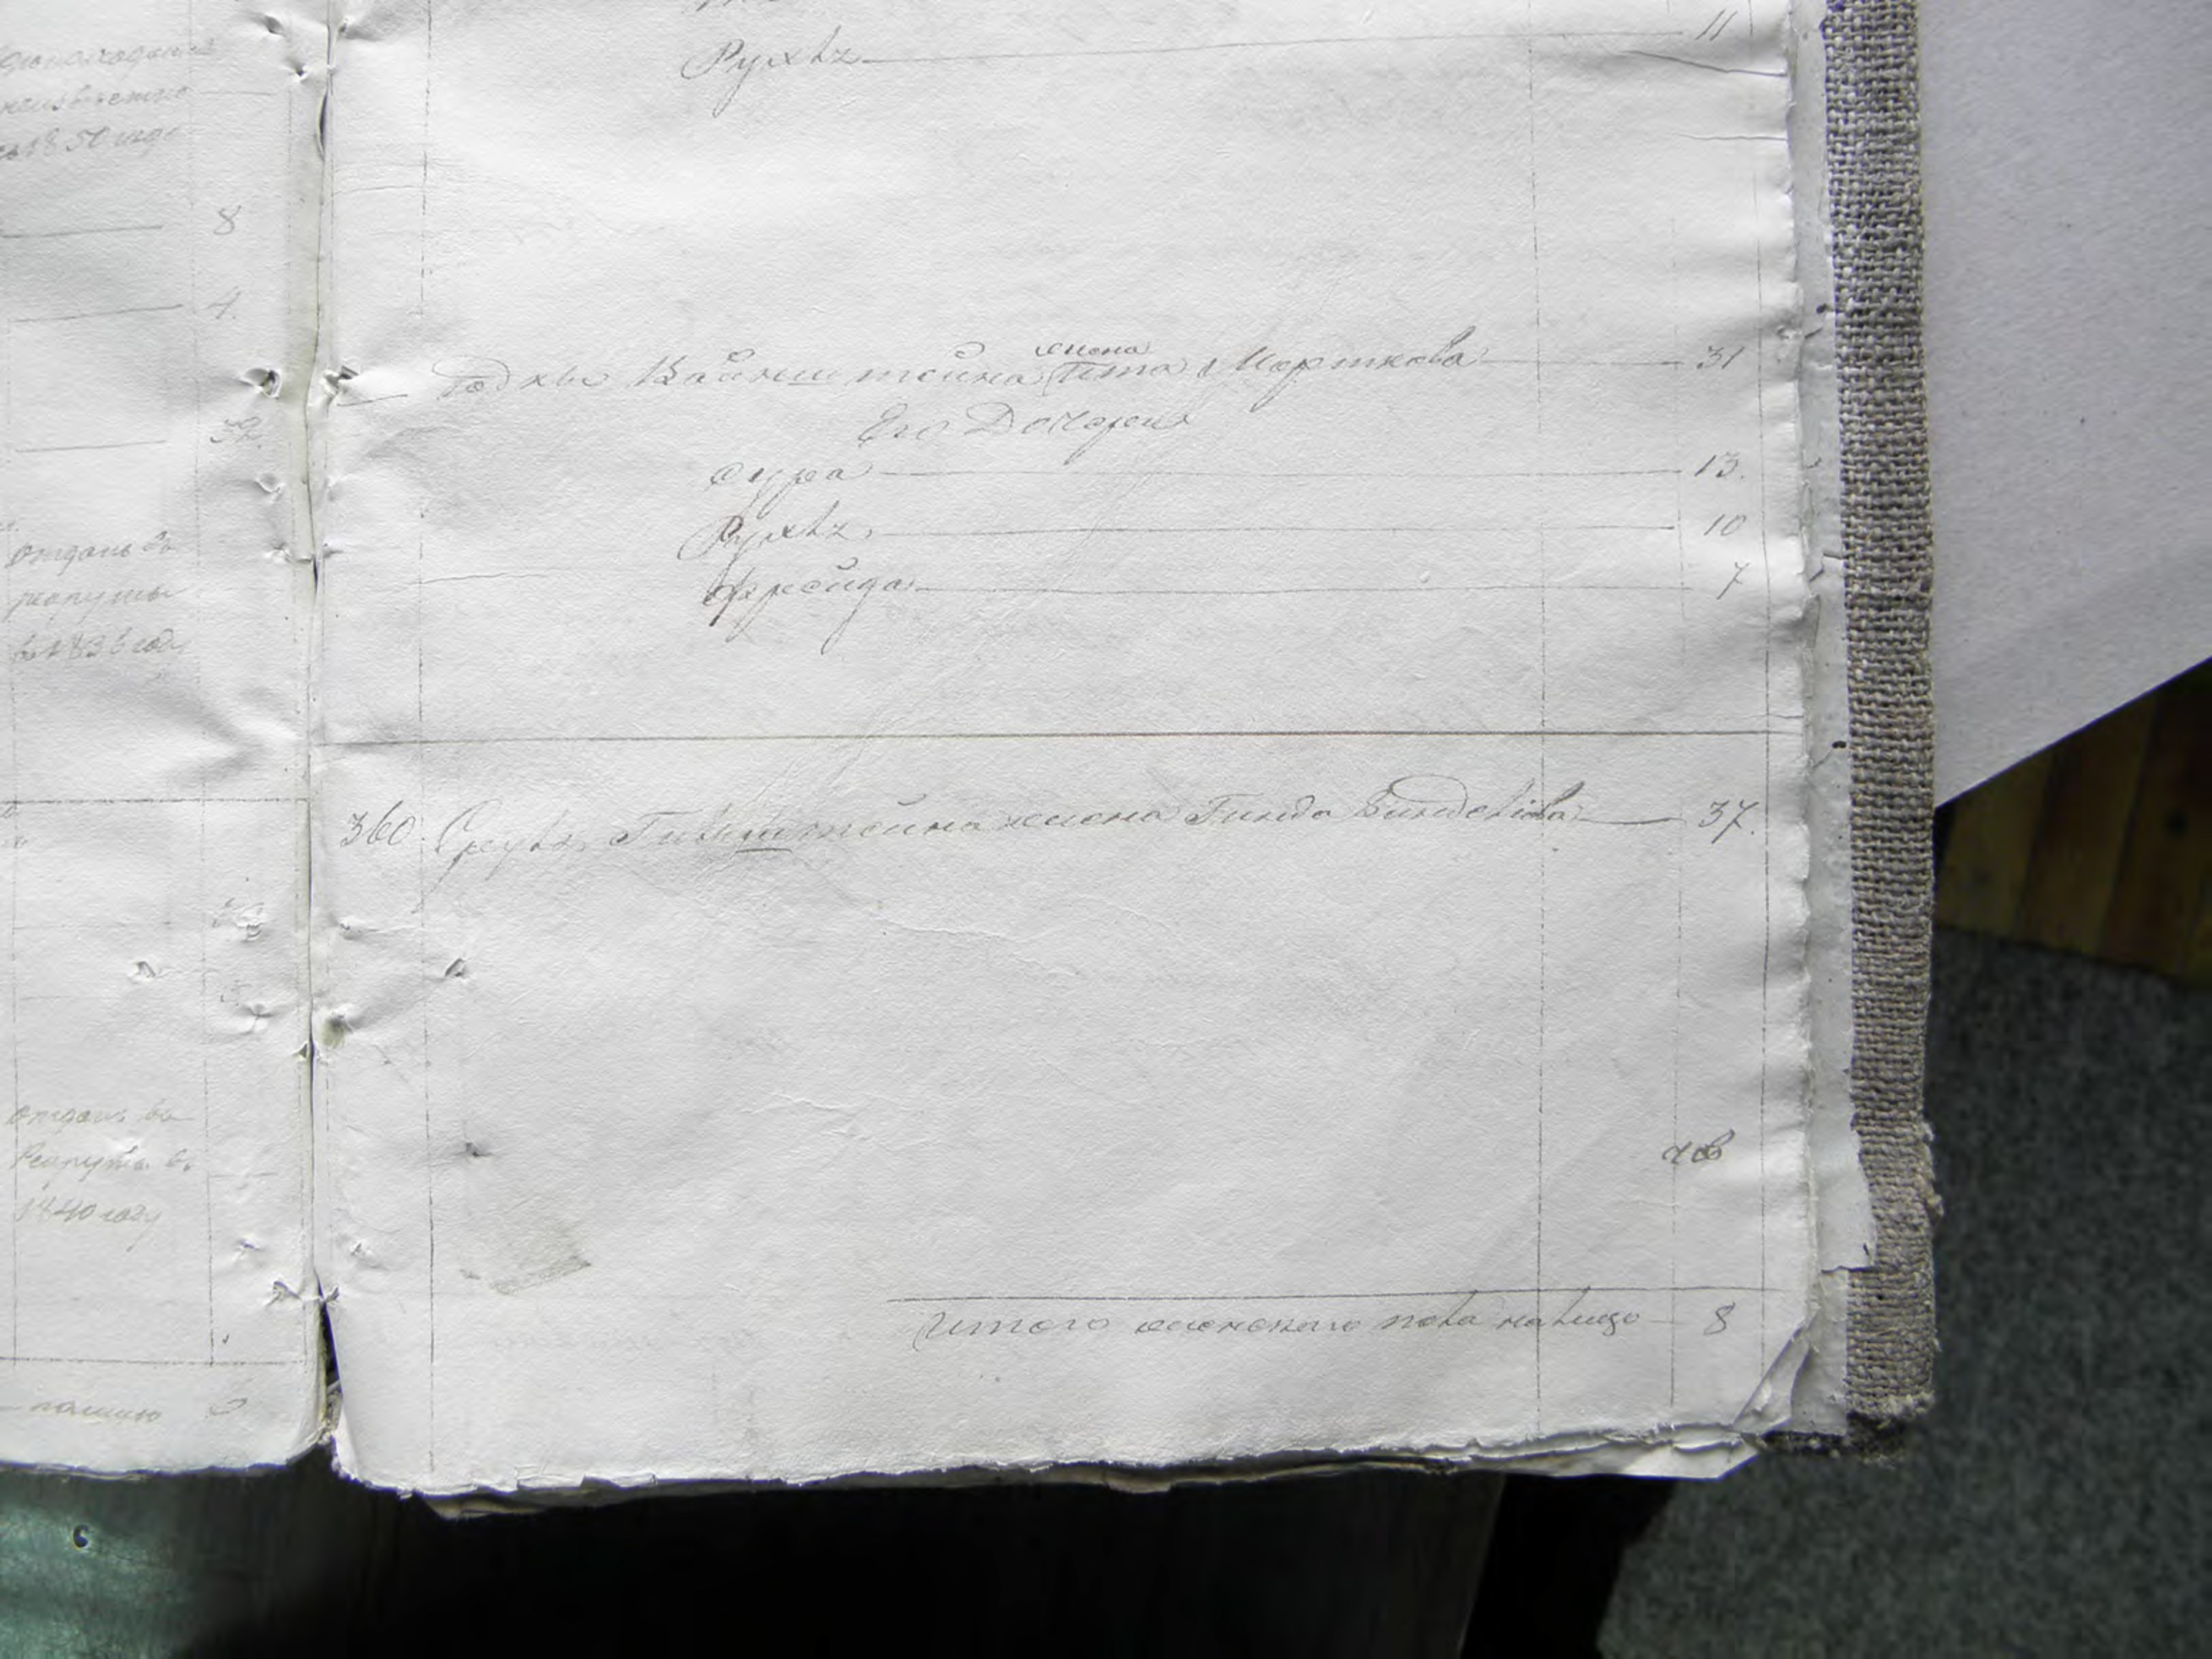 неизвестно
с 1850 года
8
4.
32.
Отданъ въ
рекруты
въ 1836 году
отданъ въ
Рекруты въ
1840 году
налицо
Рухль 11
Годки Вайнштейна жена Гита Мортхова 31
Его Дочери
Сура 13.
Рухль 10
Фрейда 7
360. Сруль Гильштейна жена Гинда 37.
Итого женского пола на лицо 8